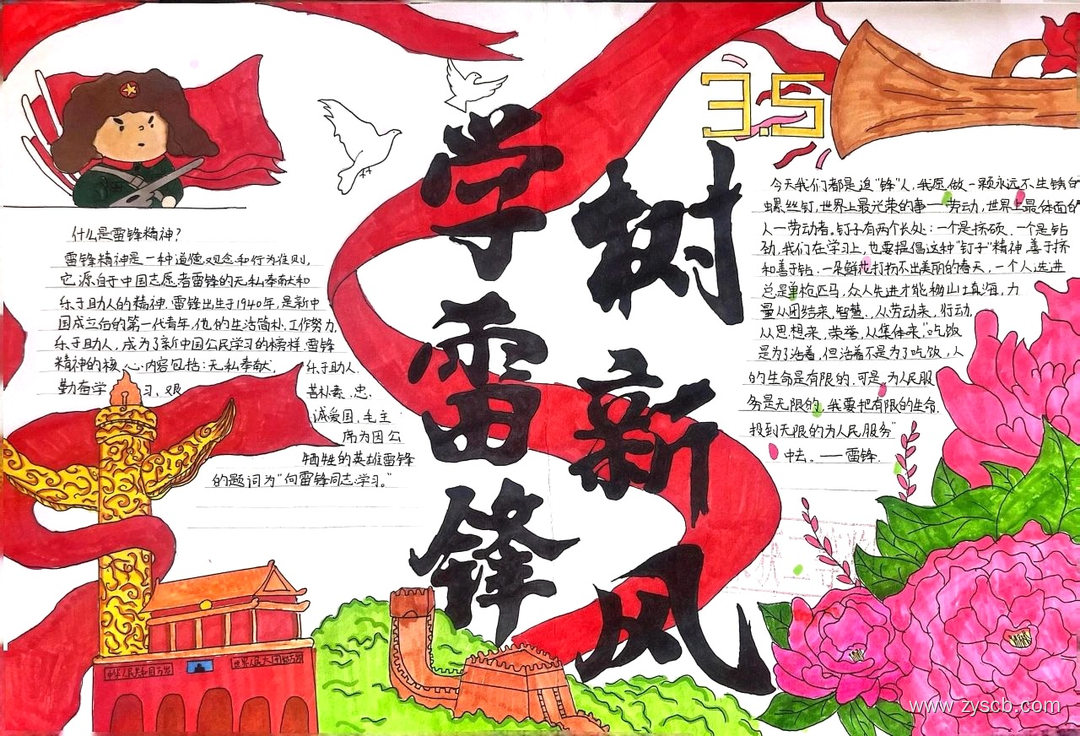 学雷锋
树新风
3.5
什么是雷锋精神?
雷锋精神是一种道德观念和行为准则,
它源自于中国志愿者雷锋的无私奉献和
乐于助人的精神.雷锋出生于1940年,是新中
国成立后的第一代青年,他的生活简朴,工作努力,
乐于助人,成为了新中国公民学习的榜样.雷锋
精神的核心内容包括:无私奉献,乐于助人.
勤奋学习、艰苦朴素、忠
诚爱国,毛主
席为因公
牺牲的英雄雷锋
的题词为"向雷锋同志学习."
今天我们都是追"锋"人,我愿做一颗永远不生锈的
螺丝钉,世界上最光荣的事一劳动,世界上最体面的
人一劳动者,钉子有两个长处:一个是挤硕,一个是钻
劲,我们在学习上,也要提倡这种"钉子"精神,善于挤
和善于钻.一朵鲜花打扮不出美丽的春天,一个人先进
总是单枪匹马,众人先进才能移山填海,力
量从团结来,智慧,从劳动来,行动,
从思想来,荣誉,从集体来,"吃饭
是为了活着,但活着不是为了吃饭,人
的生命是有限的,可是,为人民服
务是无限的,我要把有限的生命.
投到无限的为人民服务"
中去。——雷锋.
世界人民大团结万岁
www.zyscb.com